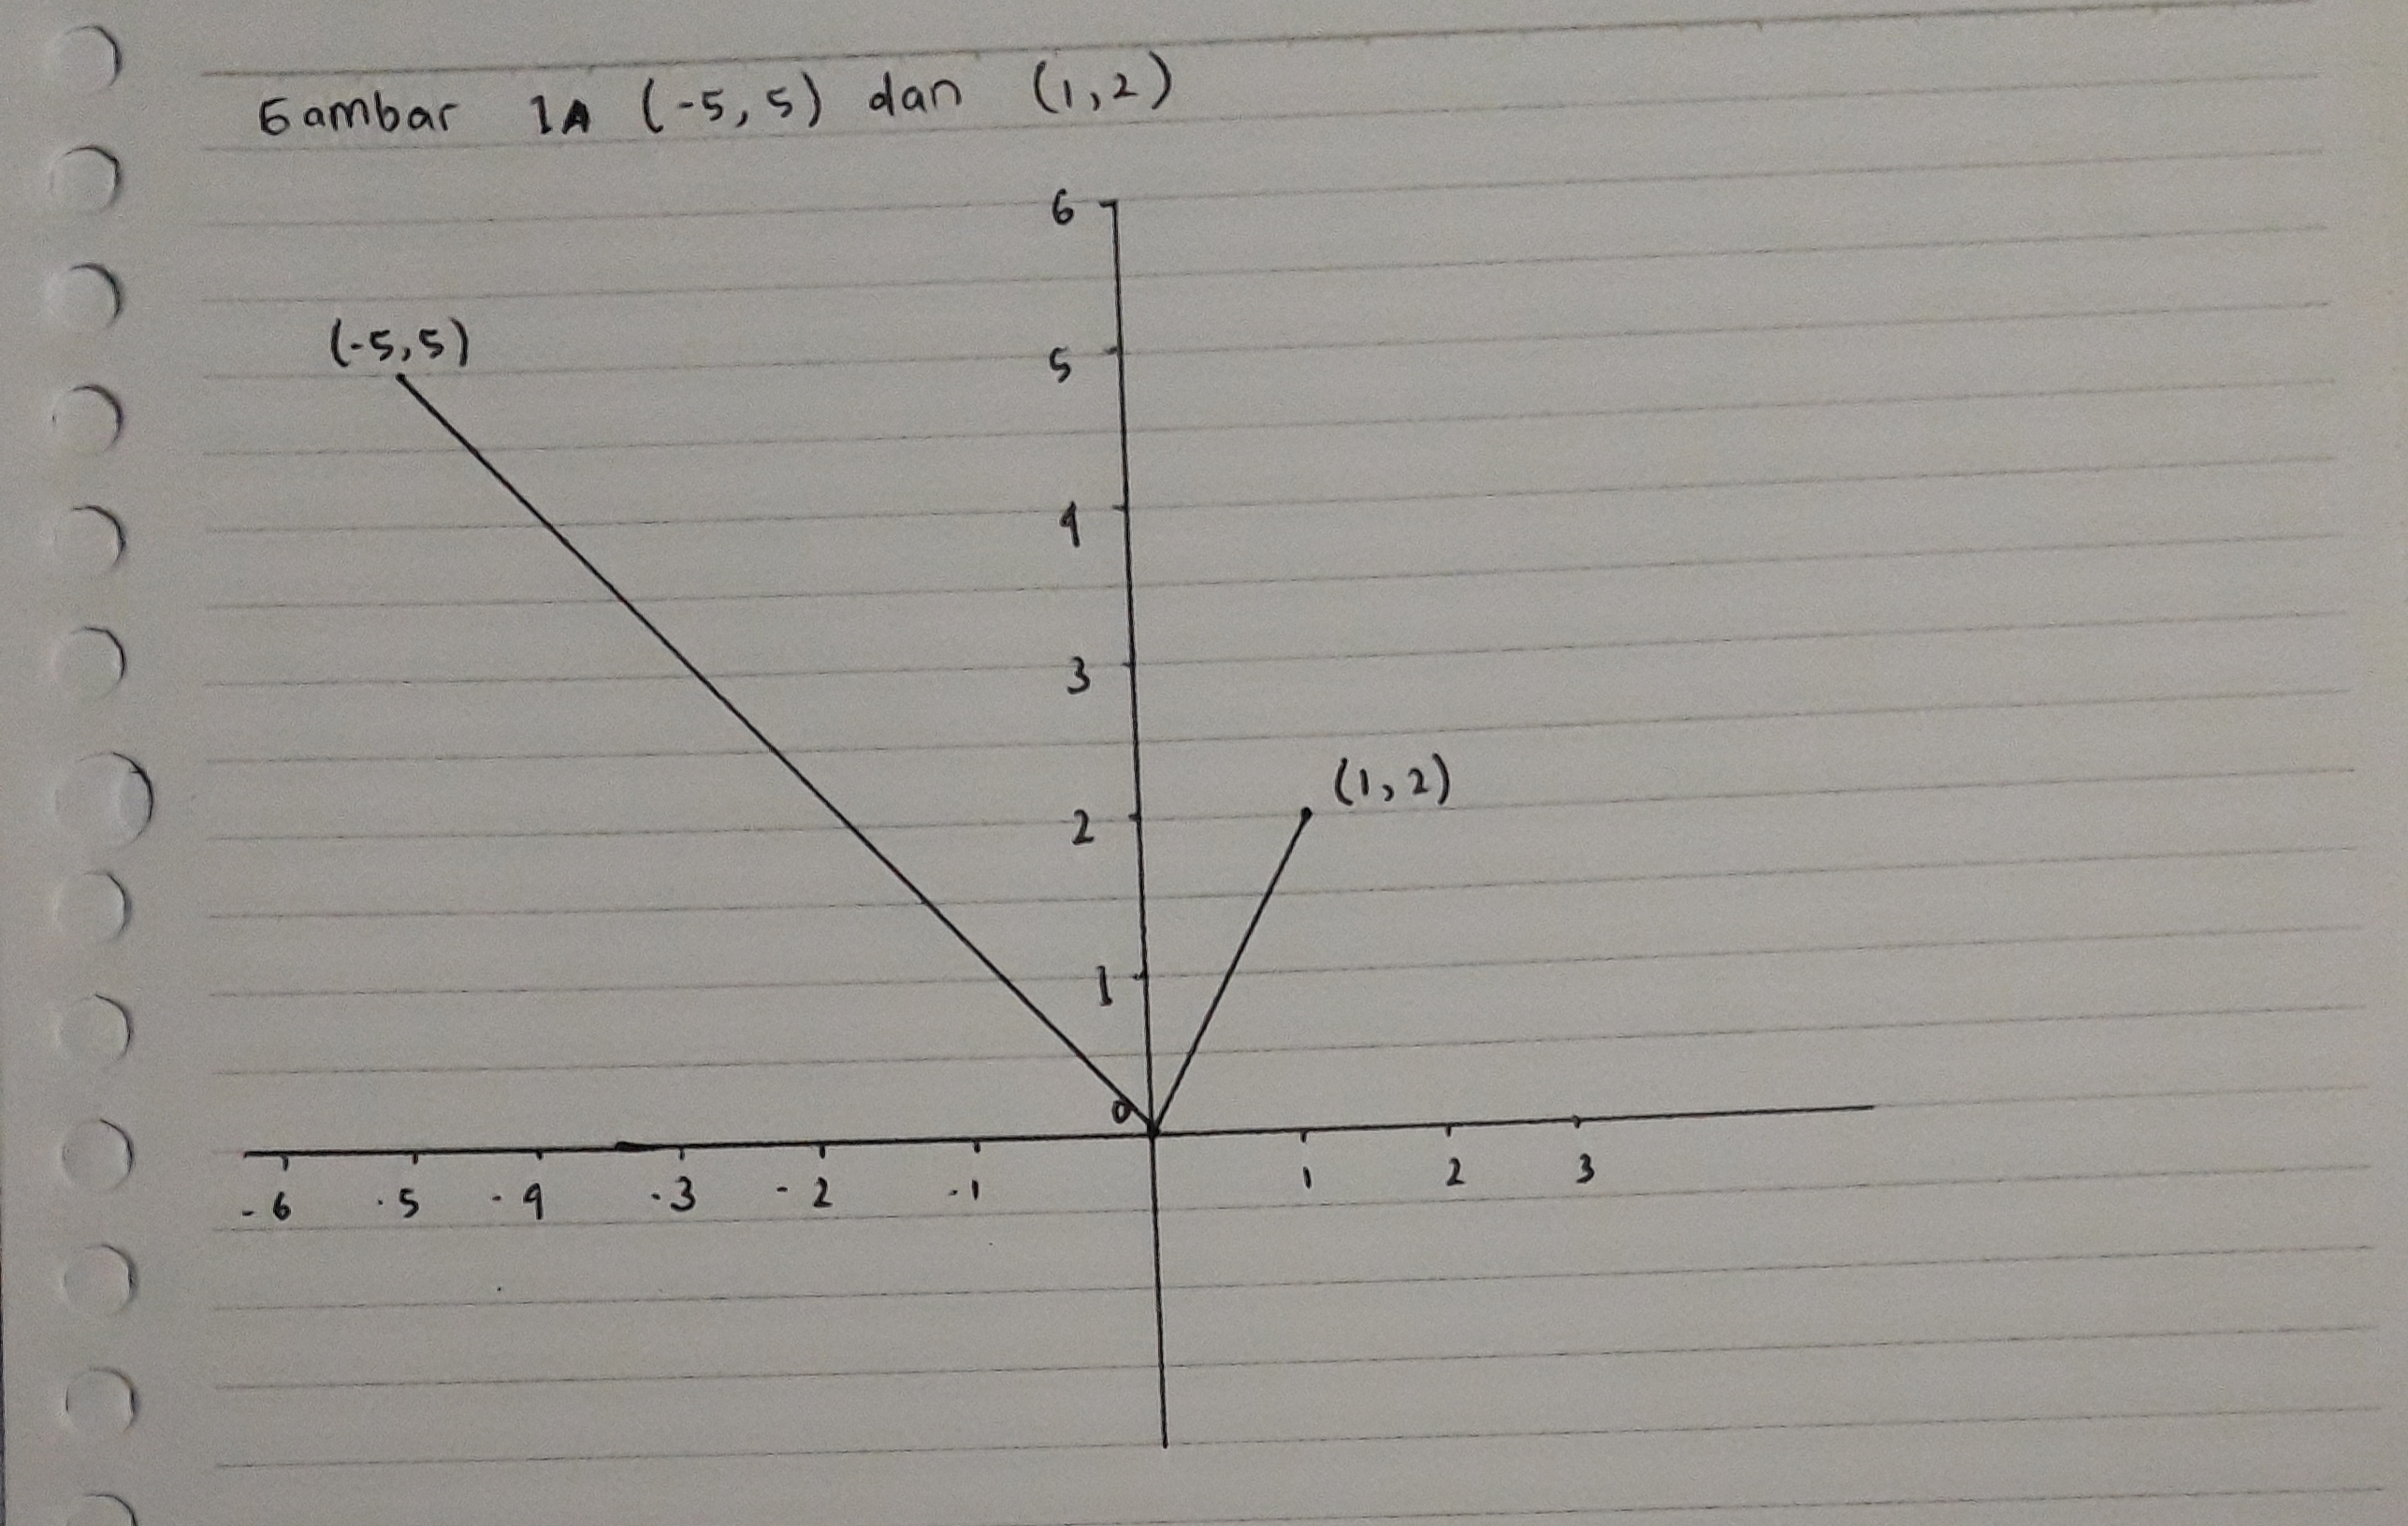 Gambar 1A (-5,5) dan (1,2)
6
(-5,5)
5
4
3
(1,2)
2
1
0
-6 -5 -4 -3 -2 -1 1 2 3